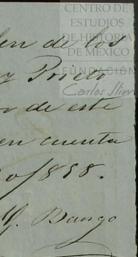 CENTRO DE
ESTUDIOS
DE HISTORIA
DE MÉXICO
Carlos Slim
den de los
y Prieto
or de este
en cuenta
o/858.
Y. Bango